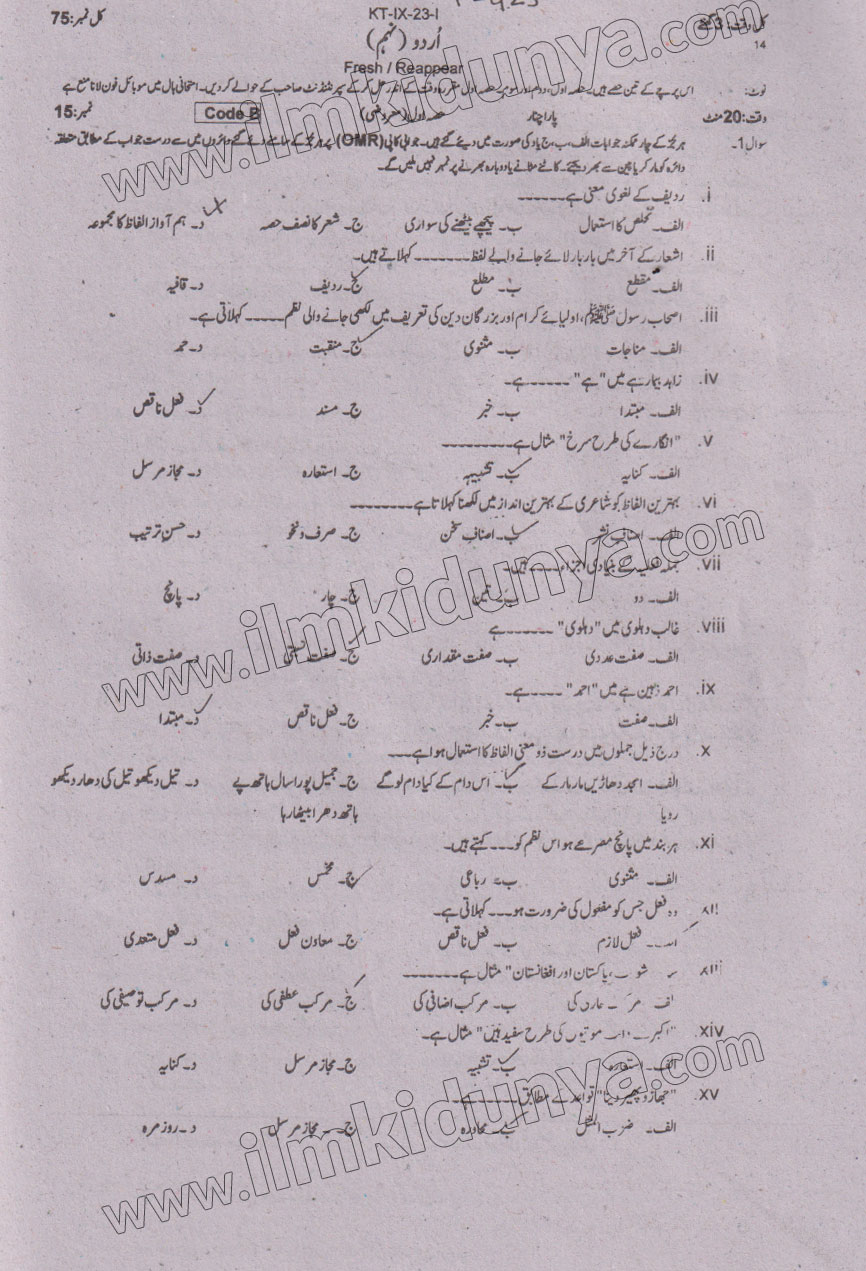 KT-IX-23-I
کل وقت: 3 گھنٹے
کل نمبر: 75
14
اُردو (نہم)
Fresh / Reappear
نوٹ: اس پرچے کے تین حصے ہیں۔ حصہ اول، دوم اور سوم۔ حصہ اول مقررہ وقت کے اندر حل کر کے سپرنٹنڈنٹ صاحب کے حوالے کر دیں۔ امتحانی ہال میں موبائل فون لانا منع ہے
وقت: 20 منٹ پاراچنار حصہ اول (معروضی) Code B نمبر: 15
سوال 1۔ ہر جُز کے چار ممکنہ جوابات الف، ب، ج یا د کی صورت میں دیئے گئے ہیں۔ جوابی کاپی (OMR) پر ہر جُز کے سامنے دیئے گئے دائروں میں سے درست جواب کے مطابق متعلقہ
دائرہ کو مارکر یا پین سے بھر دیجئے۔ کاٹنے مٹانے یا دوبارہ بھرنے پر نمبر نہیں ملیں گے۔
i. ردیف کے لغوی معنی ہے۔۔۔۔۔۔
الف۔ تخلص کا استعمال ب۔ پیچھے بیٹھنے کی سواری ج۔ شعر کا نصف حصہ د۔ ہم آواز الفاظ کا مجموعہ
ii. اشعار کے آخر میں بار بار لائے جانے والے لفظ۔۔۔۔۔۔ کہلاتے ہیں۔
الف۔ مقطع ب۔ مطلع ج۔ ردیف د۔ قافیہ
iii. اصحاب رسول ﷺ، اولیائے کرام اور بزرگان دین کی تعریف میں لکھی جانے والی نظم۔۔۔۔۔ کہلاتی ہے۔
الف۔ مناجات ب۔ مثنوی ج۔ منقبت د۔ حمد
iv. زاہد بیمار ہے میں "ہے" ۔۔۔۔۔۔ ہے۔
الف۔ مبتدا ب۔ خبر ج۔ مسند د۔ فعل ناقص
v. "انگارے کی طرح سرخ" مثال ہے۔۔۔۔۔۔۔۔۔
الف۔ کنایہ ب۔ تشبیہہ ج۔ استعارہ د۔ مجاز مرسل
vi. بہترین الفاظ کو شاعری کے بہترین انداز میں لکھنا کہلاتا ہے۔۔۔۔۔۔۔۔
الف۔ اصناف نثر ب۔ اصناف سخن ج۔ صرف و نحو د۔ حسن ترتیب
vii. جملہ فعلیہ کے بنیادی اجزاء۔۔۔۔ ہیں۔
الف۔ دو ب۔ تین ج۔ چار د۔ پانچ
viii. غالب دہلوی میں "دہلوی" ۔۔۔۔۔۔ ہے
الف۔ صفت عددی ب۔ صفت مقداری ج۔ صفت نسبتی د۔ صفت ذاتی
ix. احمد ذہین ہے میں "احمد" ۔۔۔۔ ہے۔
الف۔ صفت ب۔ خبر ج۔ فعل ناقص د۔ مبتدا
x. درج ذیل جملوں میں درست ذو معنی الفاظ کا استعمال ہوا ہے۔۔۔
الف۔ امجد دھاڑیں مار مار کے ب۔ اس دام کے کیا دام لو گے ج۔ جمیل پورا سال ہاتھ پے د۔ تیل دیکھو تیل کی دھار دیکھو
رویا ہاتھ دھرا بیٹھا رہا
xi. ہر بند میں پانچ مصرعے ہو اس نظم کو۔۔۔ کہتے ہیں۔
الف۔ مثنوی ب۔ رباعی ج۔ مخمس د۔ مسدس
وہ فعل جس کو مفعول کی ضرورت ہو۔۔۔ کہلاتی ہے۔
فعل لازم ب۔ فعل ناقص ج۔ معاون فعل د۔ فعل متعدی
پاکستان اور افغانستان" مثال ہے۔۔۔۔۔۔۔
کی ب۔ مرکب اضافی کی ج۔ مرکب عطفی کی د۔ مرکب توصیفی کی
xiv. "اکبر کے دانت موتیوں کی طرح سفید ہیں" مثال ہے۔
الف۔ استعارہ ب۔ تشبیہ ج۔ مجاز مرسل د۔ کنایہ
xv. "جھاڑو پھیر دینا" قواعد کے مطابق۔۔۔۔۔۔ ہے۔
الف۔ ضرب المثل ب۔ محاورہ ج۔ مجاز مرسل د۔ روزمرہ
www.ilmkidunya.com
www.ilmkidunya.com
www.ilmkidunya.com